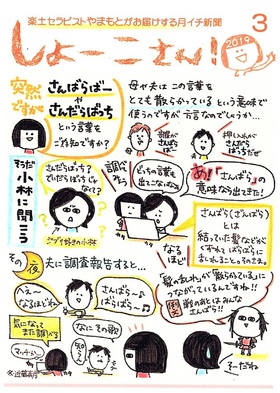 楽土セラピストやまもとがお届けする月イチ新聞
しょーこさん!
2019
3
突然ですが
さんばらばー
や
さんだらぼっち
という言葉を
ご存知ですか?
母や夫は この言葉を
とても散らかっている という意味で
使うのですが 方言なんでしょうか…
髪が
さんばら
押し入れが
さんだら
ぼっちだぜ
そうだ
小林に聞こう
さんだらぼっち?
でいだらぼっち
じゃなくて?
ジブリ好きの小林
調べたら
どっちの言葉も
出てこないなぁ…
あ!「さんばら」の
意味なら出てきた!
さんばら(ざんばら)
とは
結っていた髪などが
ずれて ばらばらに
なるほど
その夜
夫に調査報告すると…
へえ〜
なるほどねー
さんばら〜♪
ばらばら〜♪
「髪のみだれ」が「散らかっている」に
つながっているんですね!!
例文
戦のあとは みんな
さんばら!!
気になって
また調べる
なに その歌
知らん